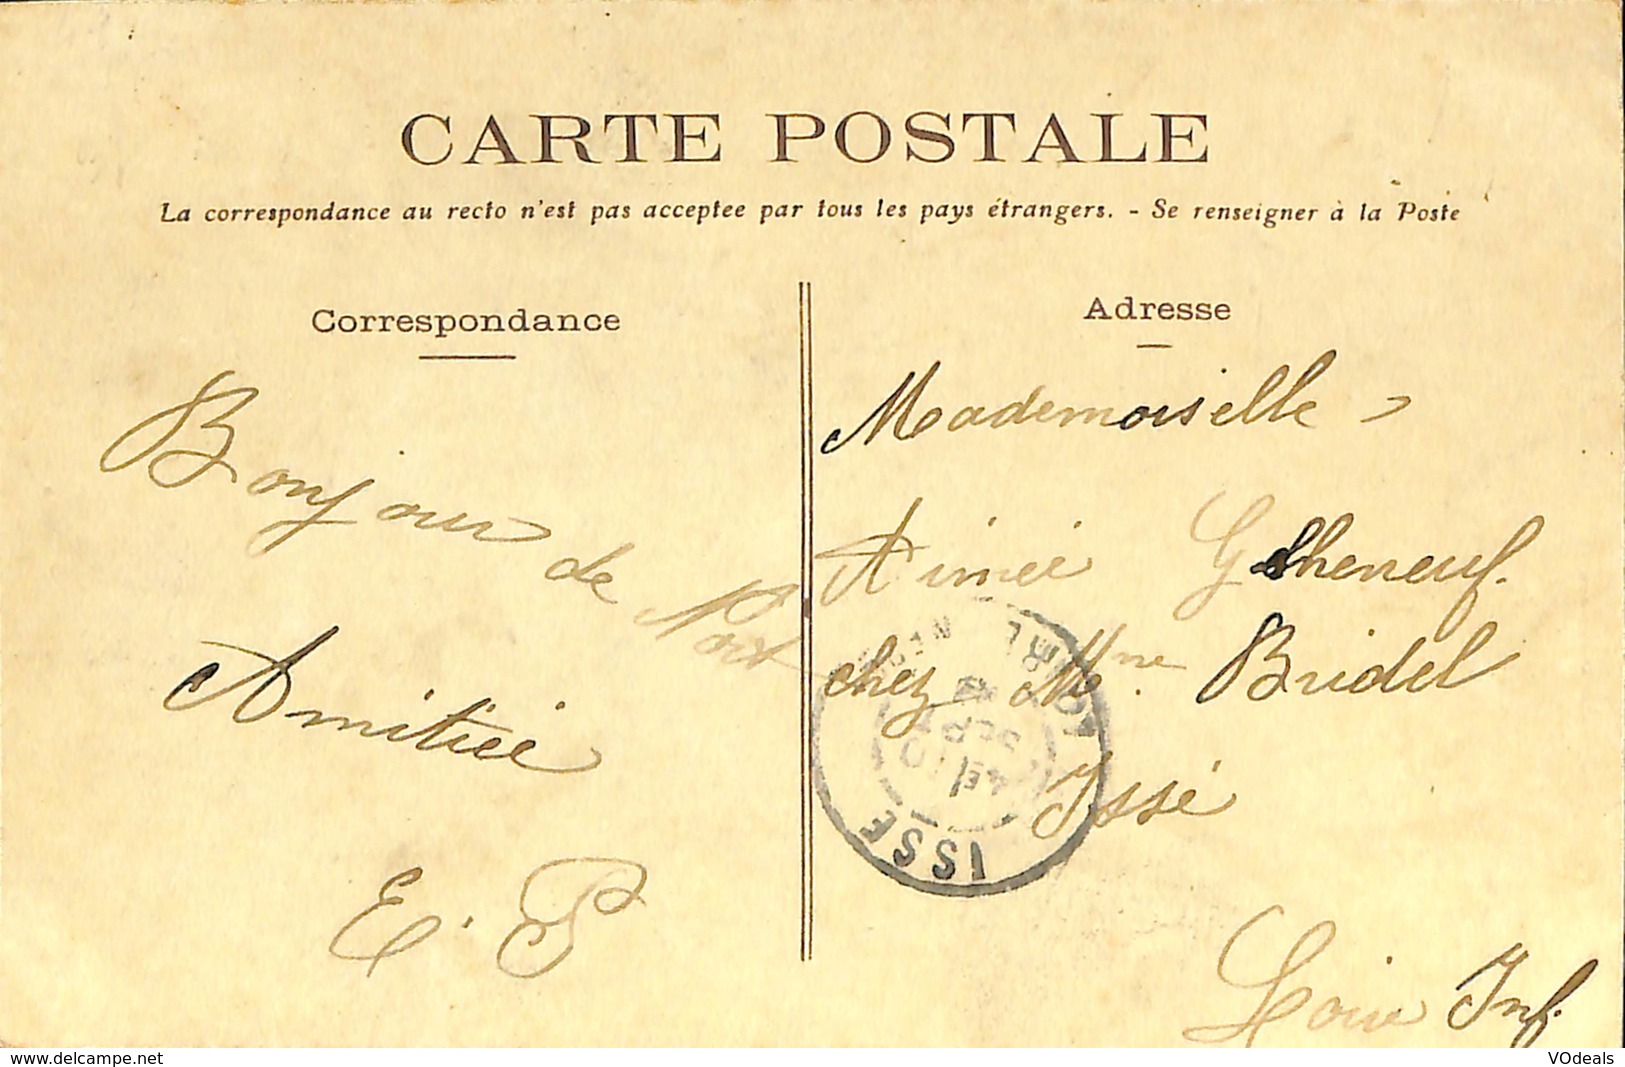 CARTE POSTALE
La correspondance au recto n'est pas acceptee par tous les pays étrangers. - Se renseigner à la Poste
Correspondance
Bonjour
de Nort
Amitiée
E. P
Adresse
Mademoiselle
Aimée
chez Mme. Bridel
Issé
Loire Inf.
ISSE
LOIRE INF
delcampe.net
VOdeals